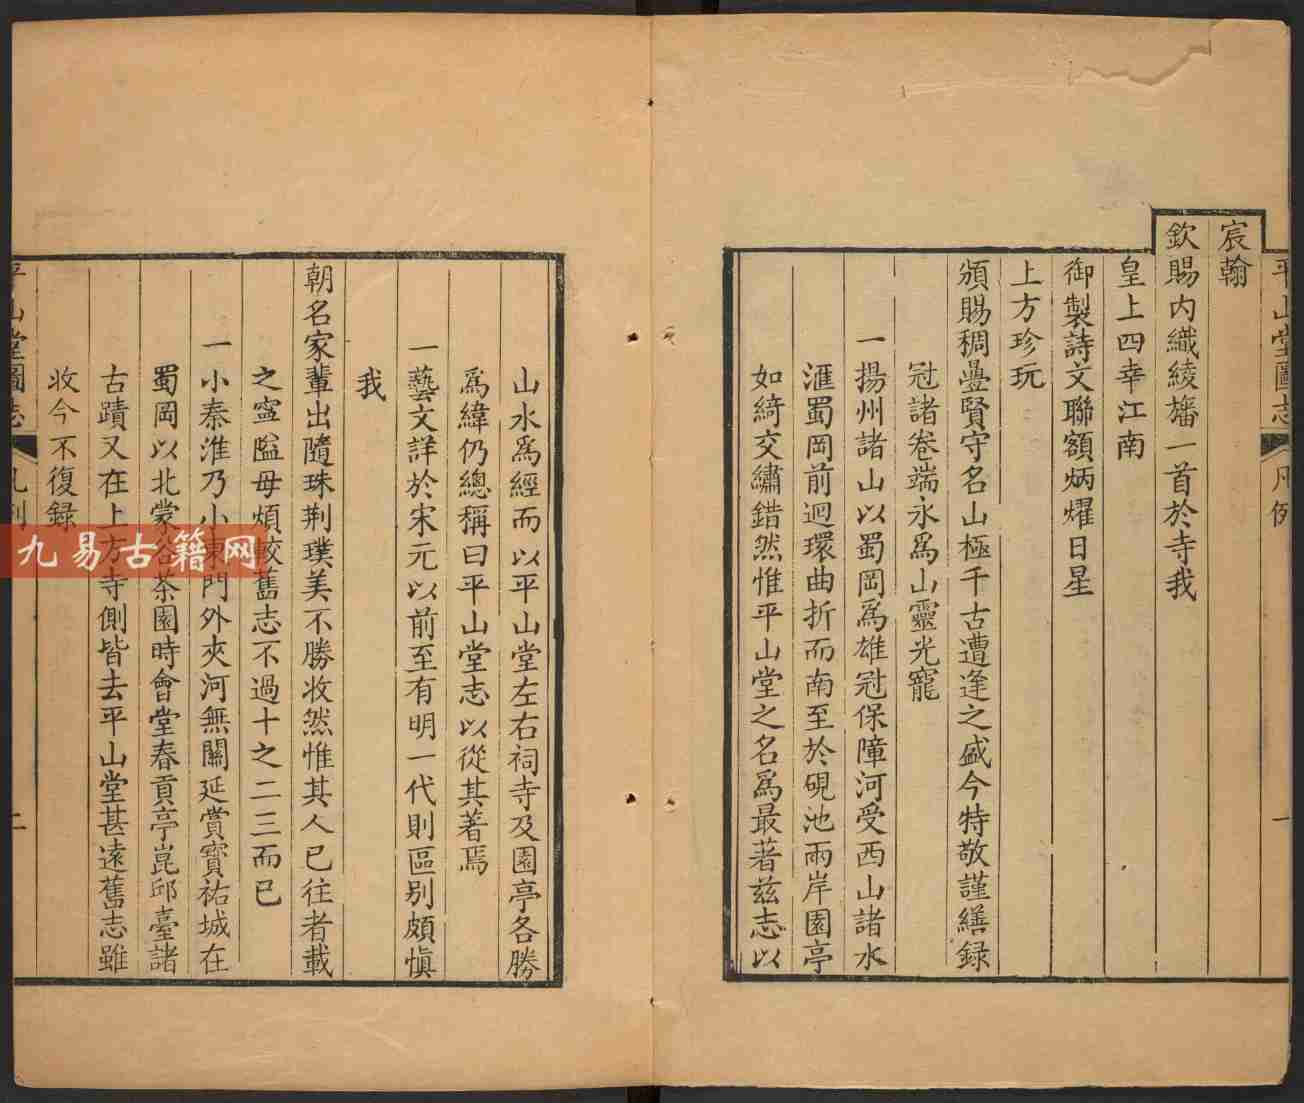 平山堂圖志 凡例 一
宸翰
欽賜内織綾旛一首於寺我
皇上四幸江南
御製詩文聯額炳燿日星
上方珍玩
頒賜稠疊賢守名山極千古遭逢之盛今特敬謹繕録
冠諸卷端永爲山靈光寵
一揚州諸山以蜀岡爲雄冠保障河受西山諸水
滙蜀岡前迴環曲折而南至於硯池兩岸園亭
如綺交繡錯然惟平山堂之名爲最著兹志以
山水爲經而以平山堂左右祠寺及園亭各勝
爲緯仍總稱曰平山堂志以從其著焉
一藝文詳於宋元以前至有明一代則區别頗愼
我
朝名家輩出隨珠荆璞美不勝收然惟其人已往者載
之寍隘毋煩較舊志不過十之二三而已
一小秦淮乃小東門外夾河無關延賞寳祐城在
蜀岡以北蒙谷茶園時會堂春貢亭崑邱臺諸
古蹟又在上方寺側皆去平山堂甚遠舊志雖
收今不復録
平山堂圖志 凡例 二
九易古籍网